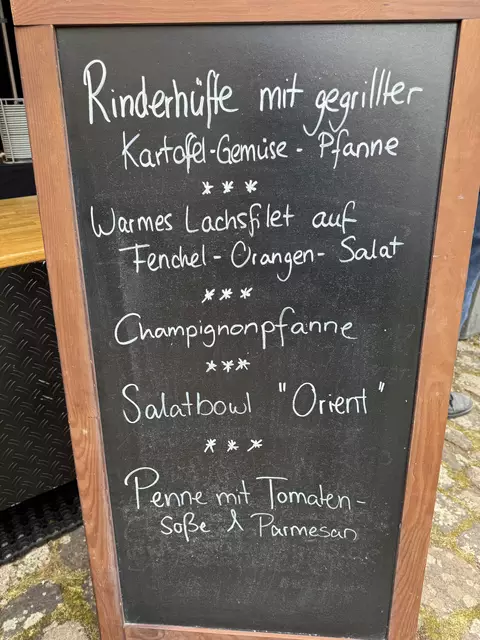 Rinderhüfte mit gegrillter
Kartoffel-Gemüse-Pfanne
***
Warmes Lachsfilet auf
Fenchel-Orangen-Salat
***
Champignonpfanne
***
Salatbowl "Orient"
***
Penne mit Tomaten-
soße & Parmesan